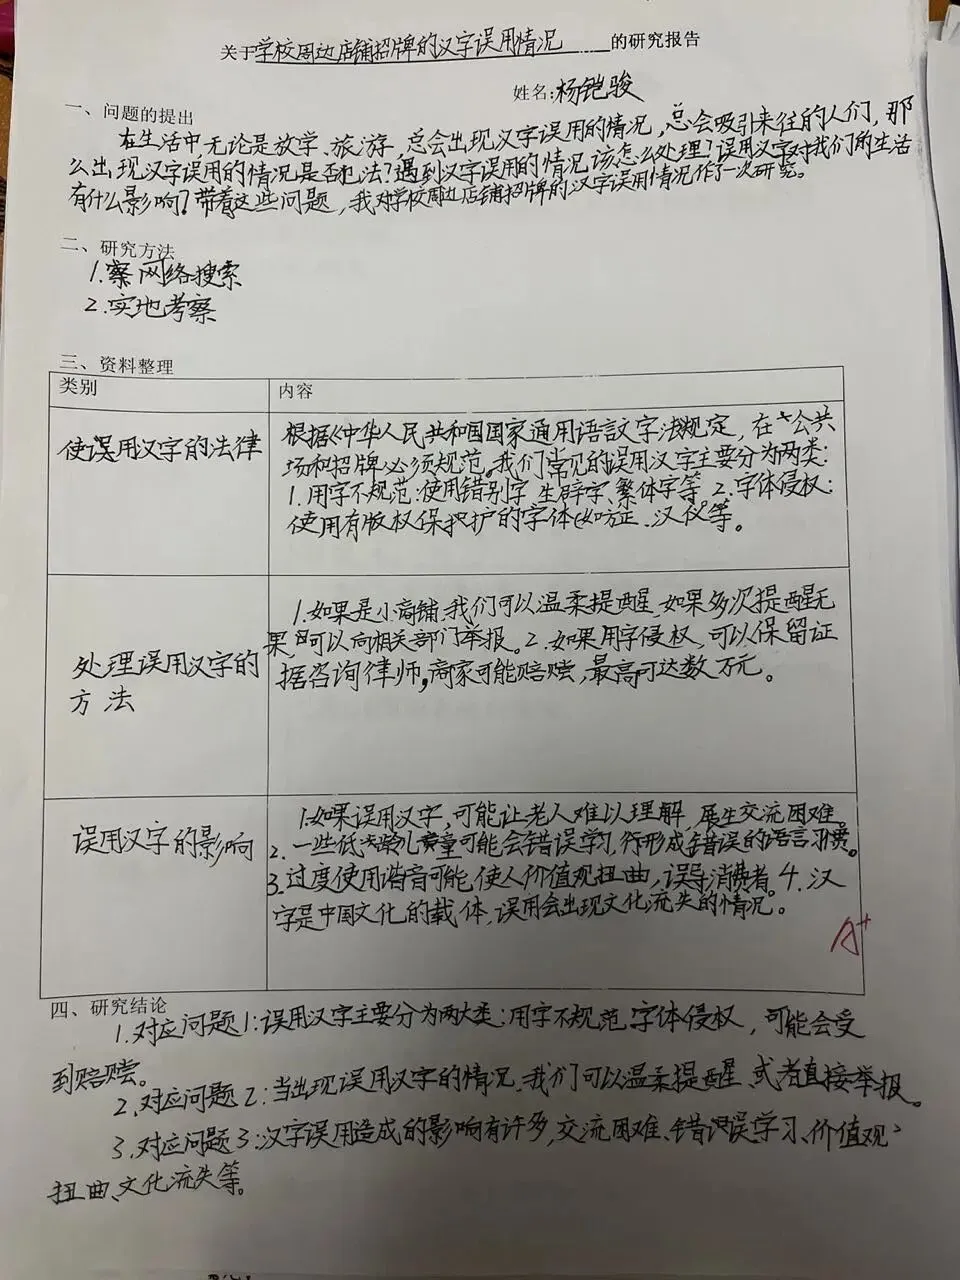 关于学校周边店铺招牌的汉字误用情况的研究报告
姓名:杨铠骏
一、问题的提出
在生活中无论是放学、旅游,总会出现汉字误用的情况,总会吸引来往的人们,那
么出现汉字误用的情况是否犯法?遇到汉字误用的情况,该怎么处理?误用汉字对我们的生活
有什么影响?带着这些问题,我对学校周边店铺招牌的汉字误用情况作了一次研究。
二、研究方法
1.察网络搜索
2.实地考察
三、资料整理
类别 内容
使误用汉字的法律
根据《中华人民共和国国家通用语言文字法规定,在公共
场和招牌必须规范。我们常见的误用汉字主要分为两类:
1.用字不规范:使用错别字、生僻字、繁体字等 2.字体侵权:
使用有版权保护的字体(如方正、汉仪等。
处理误用汉字的
方法
1.如果是小商铺,我们可以温柔提醒,如果多次提醒无
果,可以向相关部门举报。2.如果用字侵权,可以保留证
据咨询律师,商家可能赔赔,最高可达数万元。
误用汉字的影响
1.如果误用汉字,可能让老人难以理解,展生交流困难。
2.一些低龄儿童可能会错误学习,行形成错误的语言习惯。
3.过度使用谐音可能使人价值观扭曲,误导消费者。4.汉
字是中国文化的载体,误用会出现文化流失的情况。
A+
四、研究结论
1.对应问题1:误用汉字主要分为两大类:用字不规范、字体侵权,可能会受
到赔赔。
2.对应问题2:当出现误用汉字的情况,我们可以温柔提醒、或者直接举报。
3.对应问题3:汉字误用造成的影响有许多,交流困难、错误学习、价值观
扭曲、文化流失等。